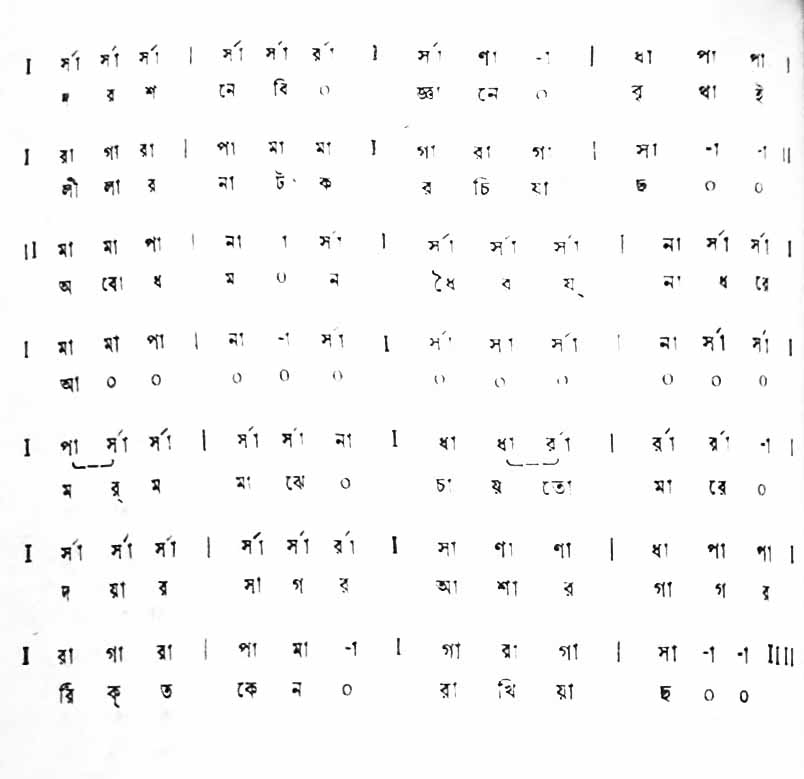 I র্সা র্সা র্সা | র্সা র্সা র্রা I র্সা ণা -া | ধা পা পা I
দ র শ নে বি ০ জ্ঞা নে ০ বৃ থা ই
I রা গা রা | পা মা মা I গা রা গা | সা -া -া II
লী লা র না ট ক র চি য়া ছ ০ ০
II মা মা পা | না া র্সা I র্সা র্সা র্সা | না র্সা র্সা I
অ বো ধ ম ০ ন ধৈ র য্ না ধ রে
I মা মা পা | না -া র্সা I র্সা সা র্সা | না র্সা র্সা I
আ ০ ০ ০ ০ ০ ০ ০ ০ ০ ০ ০
I পা র্সা র্সা | র্সা র্সা না I ধা ধা র্রা | র্রা র্রা -া I
ম র্ ম মা ঝে ০ চা য় তো মা রে ০
I র্সা র্সা র্সা | র্সা র্সা র্রা I সা ণা ণা | ধা পা পা I
দ য়া র সা গ র আ শা র গা গ র
I রা গা রা | পা মা -া I গা রা গা | সা -া -া IIII
রি ক্ ত কে ন ০ রা খি য়া ছ ০ ০